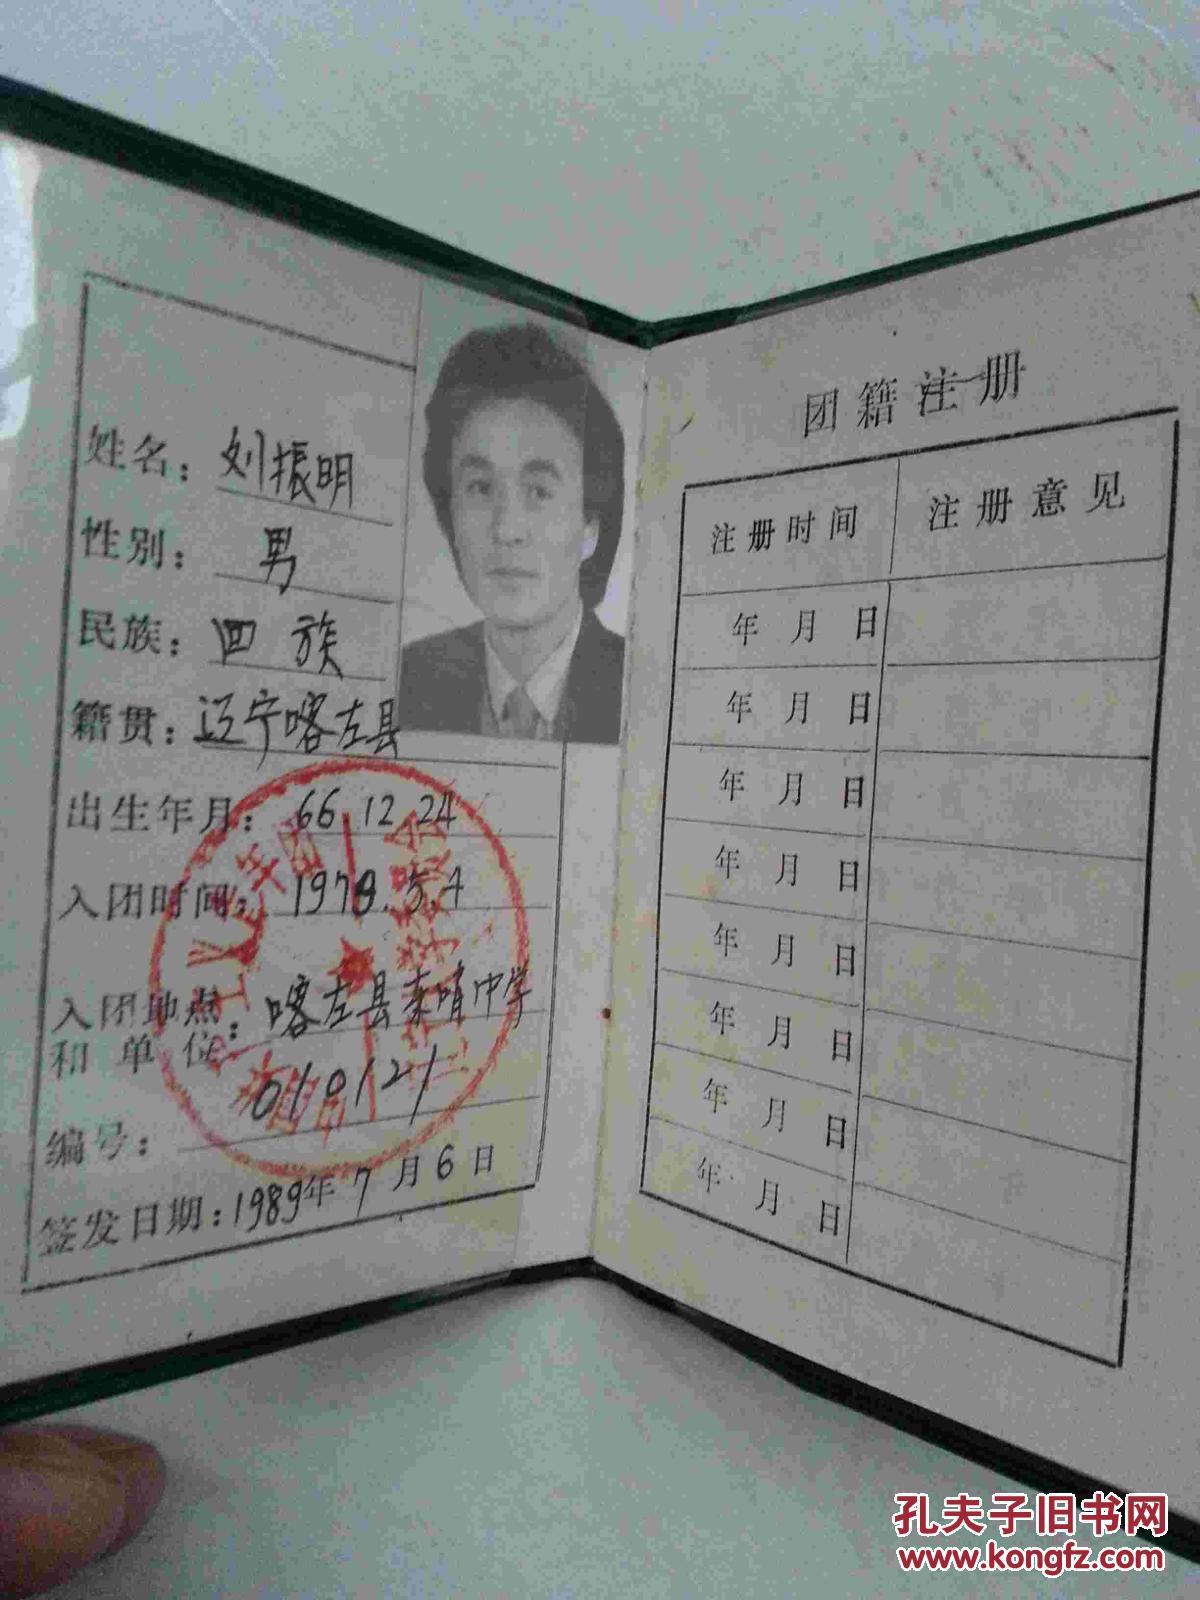 姓名：刘振明
性别：男
民族：回族
籍贯：辽宁喀左县
出生年月：66.12.24
入团时间：1979.5.4
入团地点
和单位：喀左县 中学
编号：010121
签发日期：1989年7月6日
团籍注册
注册时间 注册意见
年 月 日
年 月 日
年 月 日
年 月 日
年 月 日
年 月 日
年 月 日
年 月 日
孔夫子旧书网
www.kongfz.com